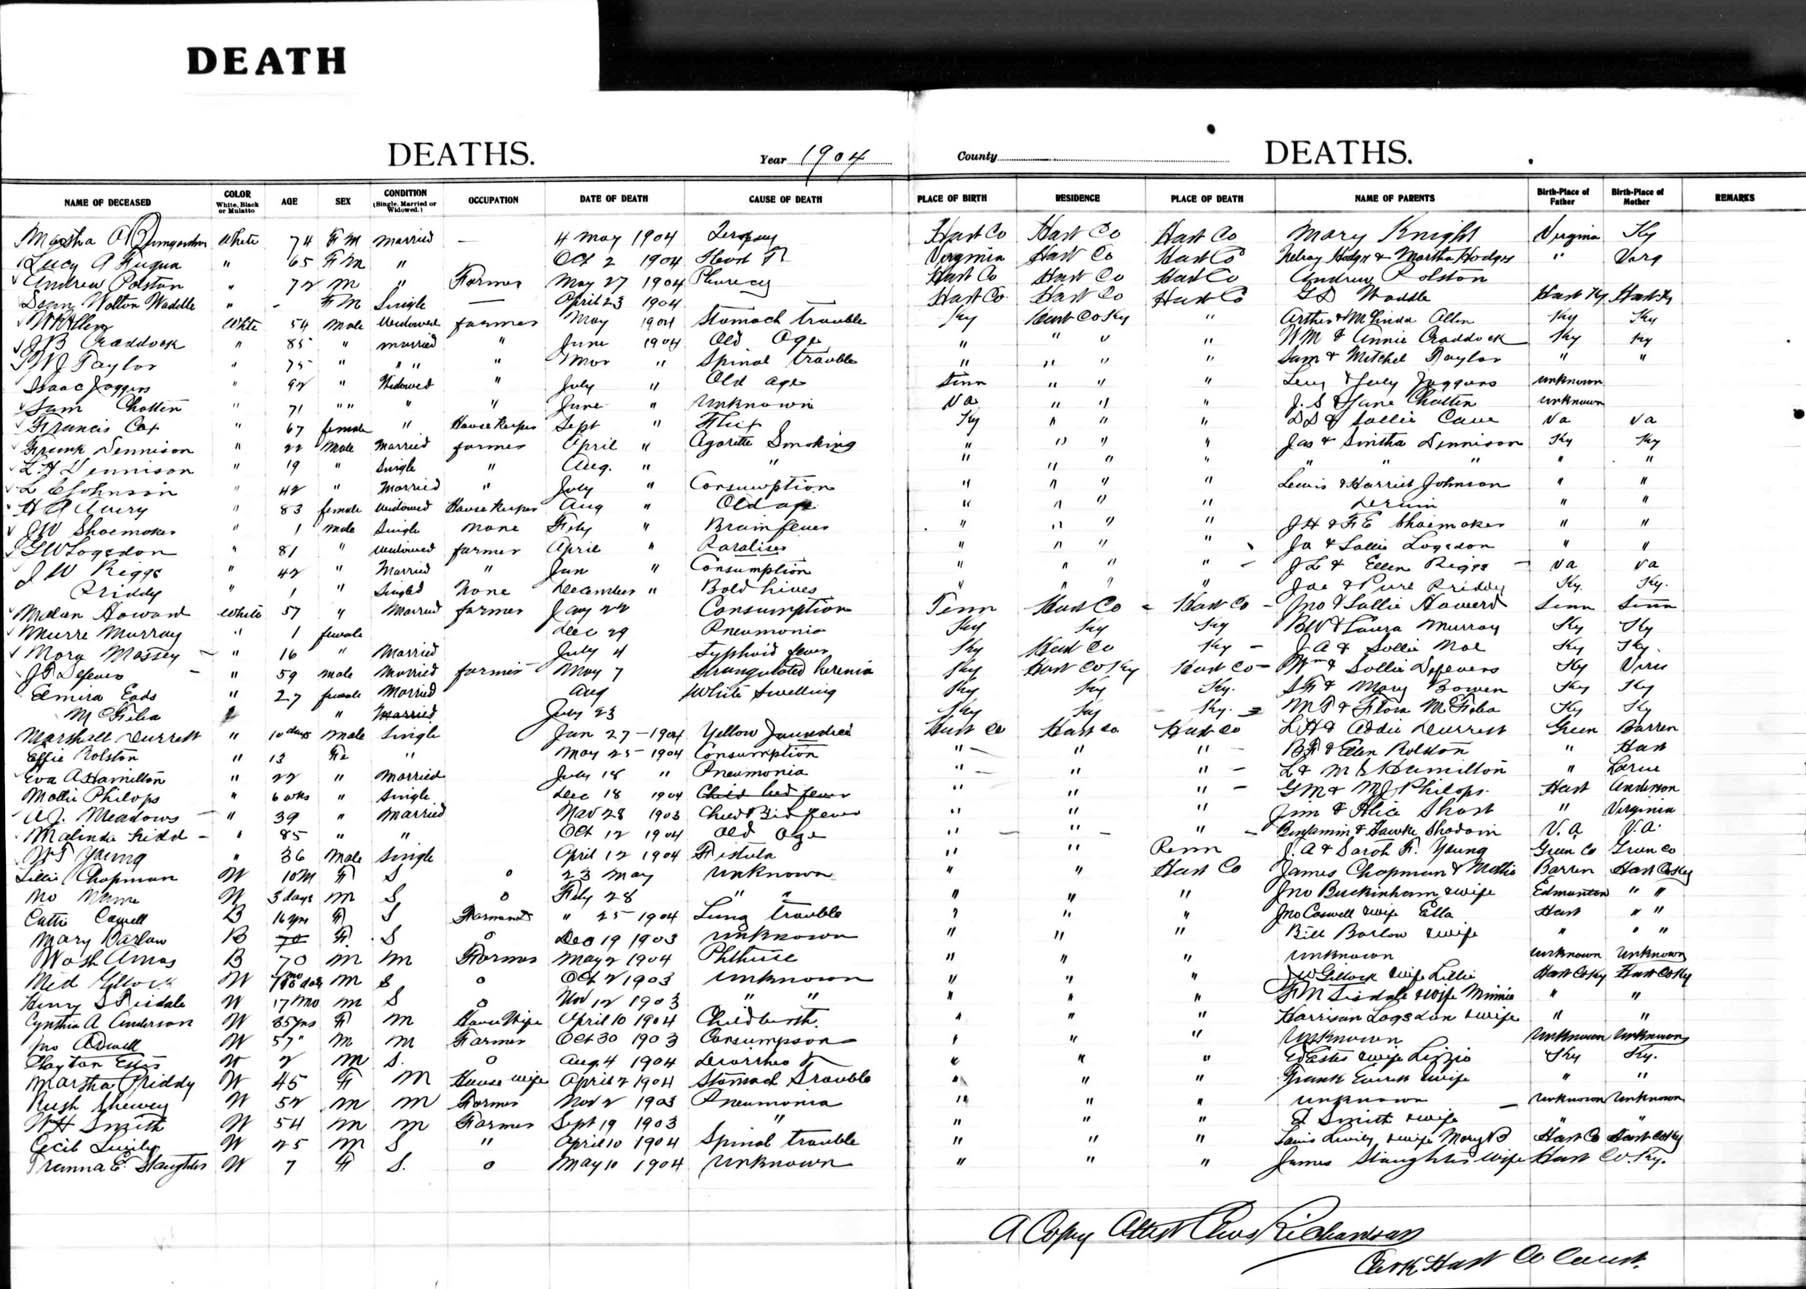 DEATH
DEATHS. Year 1904 County DEATHS.
NAME OF DECEASED COLOR White, Black or Mulatto AGE SEX CONDITION (Single, Married or Widowed.) OCCUPATION DATE OF DEATH CAUSE OF DEATH PLACE OF BIRTH RESIDENCE PLACE OF DEATH NAME OF PARENTS Birth-Place of Father Birth-Place of Mother REMARKS
Martha A White 74 F M Married — 4 May 1904 Hart Co Hart Co Hart Co Mary Knight Virginia Ky
Lucy A Fuqua " 65 F M " Oct 2 1904 Virginia Hart Co Hart Co Hodges & Martha Hodges "
Andrew Polston " 72 M " Farmer May 27 1904 Hart Co Hart Co Hart Co Andrew Polston
Waddle " - F M Single — April 23 1904 Hart Co Hart Co Hart Co Waddle Hart Ky Hart Ky
White 54 Male Widowed farmer May 1904 Stomach trouble Ky Hart Co Ky " Arther & Allen Ky Ky
J B Craddock " 85 " married " June 1904 Old Age " " " " WM & Annie Craddock Ky Ky
W J Taylor " 75 " " " " Mar " Spinal trouble " " " " Sam & Mitchel Taylor " "
Isaac Jaggers " 92 " Widowed " July " Old age Tenn " " " Levy & July Jaggers unknown
Sam " 71 " " " " June " Unknown Va " " " J. S & Jane unknown
Francis Cox " 67 female " House Keeper Sept " Ky " " " & Sallie Cave Va Va
Frank Dennison " 22 Male Married farmer April " Smoking " " " " Jas & Dennison Ky Ky
Dennison " 19 " Single " Aug. " " " " " " " " " " "
L C Johnson " 42 " Married " July " Consumption " " " " Lewis & Harriet Johnson " "
" 83 female Widowed House Keeper Aug " Old age " " " " " "
J W Shoemaker " 1 male Single None Feby " Brain fever " " " " J H & F E Shoemaker " "
G W Logsdon " 81 " Widowed farmer April " Paralises " " " " & Sallie Logsdon " "
J W Riggs " 42 " Married " Jan " Consumption " " " " & Ellen Riggs Va Va
Priddy " 1 " Single None December " Bold hives " " " " Joe & Priddy Ky. Ky.
Howard White 57 " Married farmer Jany 22 Consumption Tenn Hart Co Hart Co Jno & Sallie Howard Tenn Tenn
Murray " 1 female Dec 29 Pneumonia Ky Ky Ky BW & Laura Murray Ky Ky
Massey " 16 " Married July 4 Typhoid fever Ky Hart Co Ky J A & Sallie Ky Ky.
" 59 male Married farmer May 7 Strangulated hernia Ky Hart Co Ky Hart Co & Sallie Ky
Elmira Eads " 27 female Married Aug White Swelling Ky Ky Ky. & Mary Bowen Ky Ky
" Married July 23 Ky Ky Ky. & Flora Ky Ky
Marshall Durrett " 10 days male Single Jan 27 - 1904 Yellow Jaundice Hart Co Hart Co Hart Co L H & Addie Durrett Green Barren
Effie Rolston " 13 Fe " May 25 - 1904 Consumption " " " & Ellen Rolston " Hart
Eva A Hamilton " 22 " Married July 18 " Pneumonia " " " Hamilton " Larue
Mollie Philops " 6 wks " Single Dec 18 1904 Child bed fever " " " G M & M J Philops Hart Anderson
A J. Meadows " 39 " Married Nov 28 1903 Child Bed fever " " " Jim & Alice Short " Virginia
Malinda Kidd " 85 " " Oct 12 1904 Old Age " " " Benjamin & V.a. V.a.
Young " 36 Male Single April 12 1904 Fistula " " J. A & Sarah F. Young Green Co Green Co
Lillie Chapman W 10 M F S o 23 May unknown " " Hart Co James Chapman & Mollie Barren Hart Co Ky
No Name W 3 days M S o Feby 28 " " " " " Jno Buckinham & wife Edmonton " "
B 16 yrs F S " 25 - 1904 Lung trouble " " " Jno Caswell & wife Ella Hart " "
Mary Barlow B 70 F. S o Dec 19 1903 unknown " " " Bill Barlow & wife " " "
Wash Amos B 70 M M Farmer May 2 1904 " " " unknown unknown unknown
W M S o Oct 2 1903 unknown " " " wife Lillie Hart Co Ky Hart Co Ky
Henry Tisdale W 17 Mo M S o Nov 12 1903 " " " " " Tisdale & wife Minnie " "
Cynthia A Anderson W 35 yrs F M House Wife April 10 1904 Childbirth. " " " Harrison Logsdon & wife " "
W 57 M M Farmer Oct 30 1903 Consumpson " " " unknown unknown unknown
Clayton Estes W 2 M S. o Aug 4 1904 " " " Ed Estes & wife Lizzie Ky Ky.
Martha Priddy W 45 F M House wife April 2 1904 Stomach Trouble " " " Frank & wife " "
Rush W 52 M M Farmer Nov 2 1903 Pneumonia " " " unknown unknown unknown
W H Smith W 54 M M Farmer Sept 19 1903 " " " " Smith & wife "
Cecil W 25 M S " April 10 1904 Spinal trouble " " " & wife Mary B Hart Co Hart Co Ky
E. Slaughter W 7 F S. o May 10 1904 unknown " " " James Slaughter & wife Hart Co. Ky.
A Copy Attest Richardson
Clerk Hart Co Court.